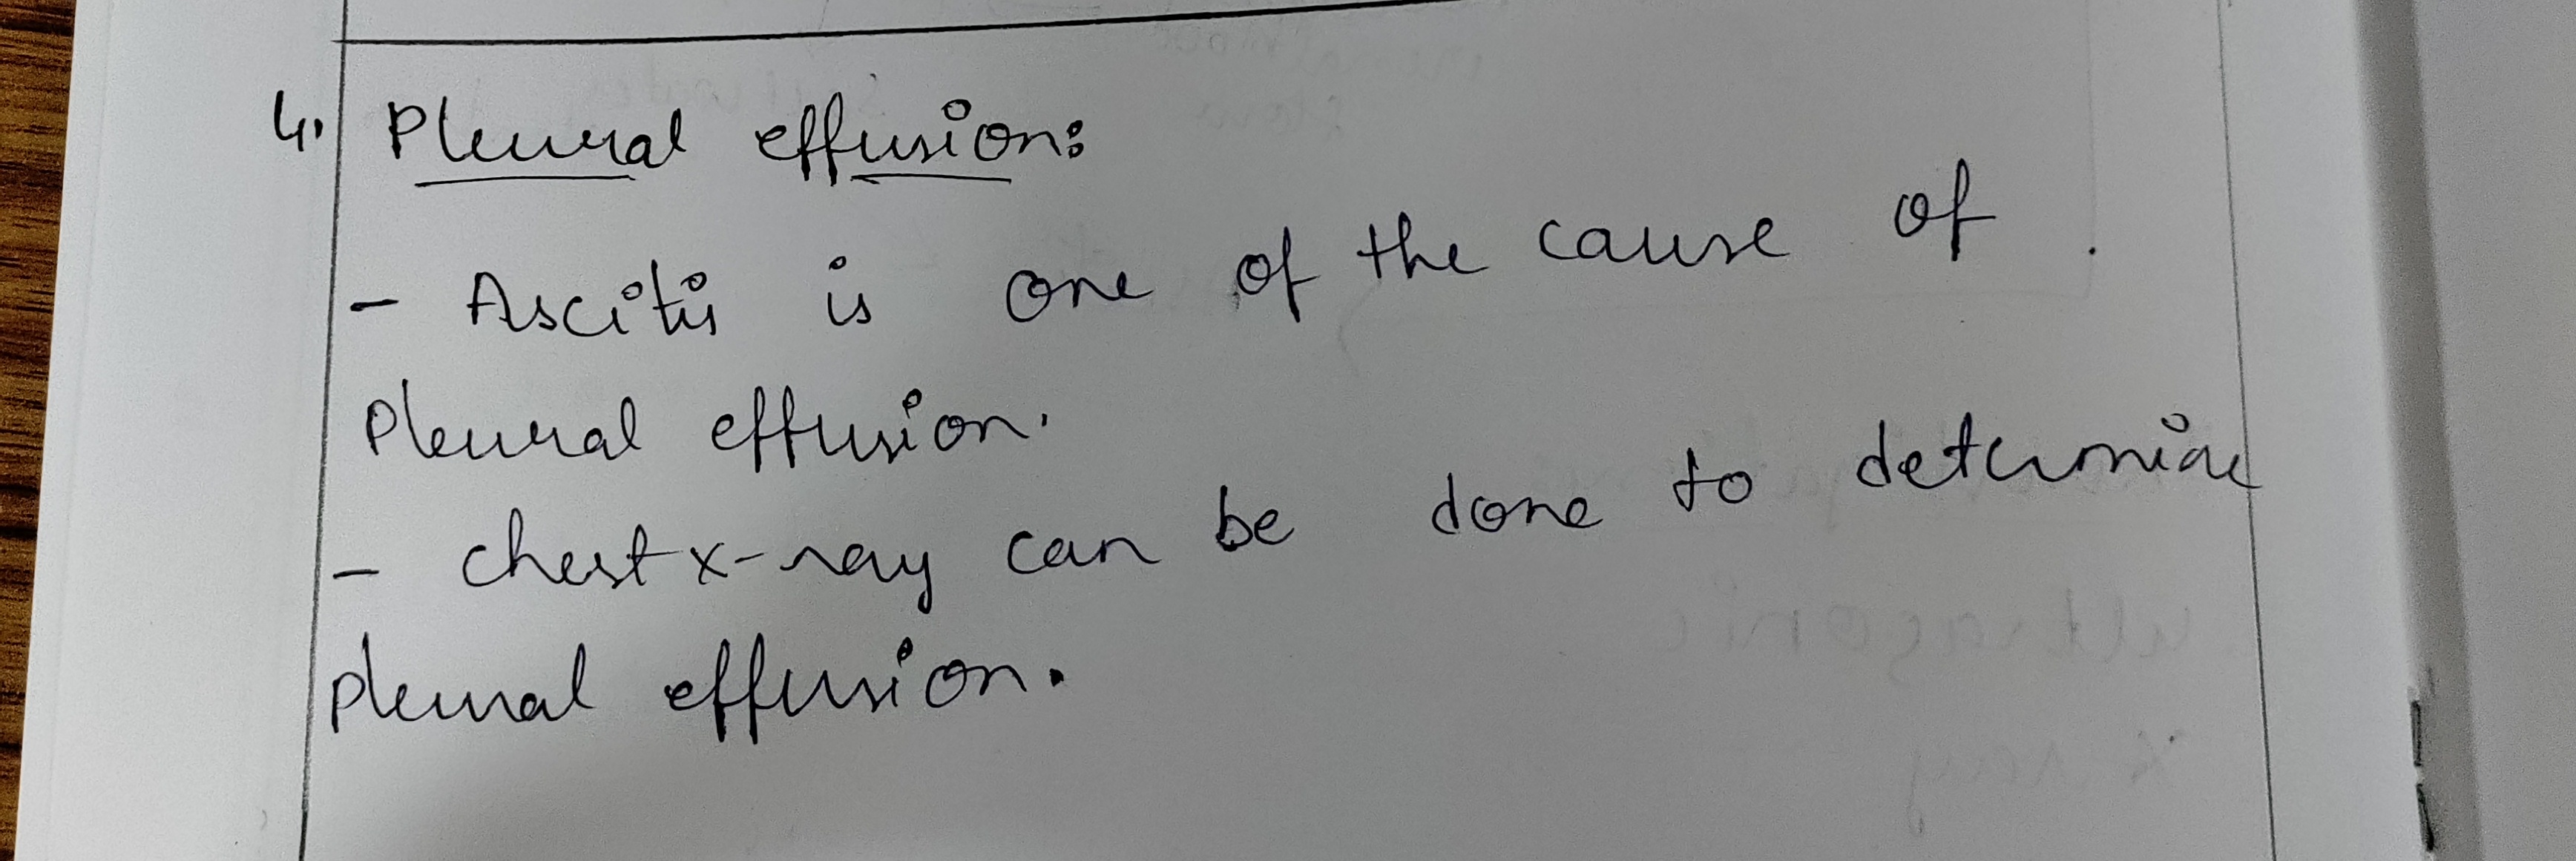 4. Pleural effusion:
- Ascitis is one of the cause of
Pleural effusion.
- chest x-ray can be done to determine
pleural effusion.